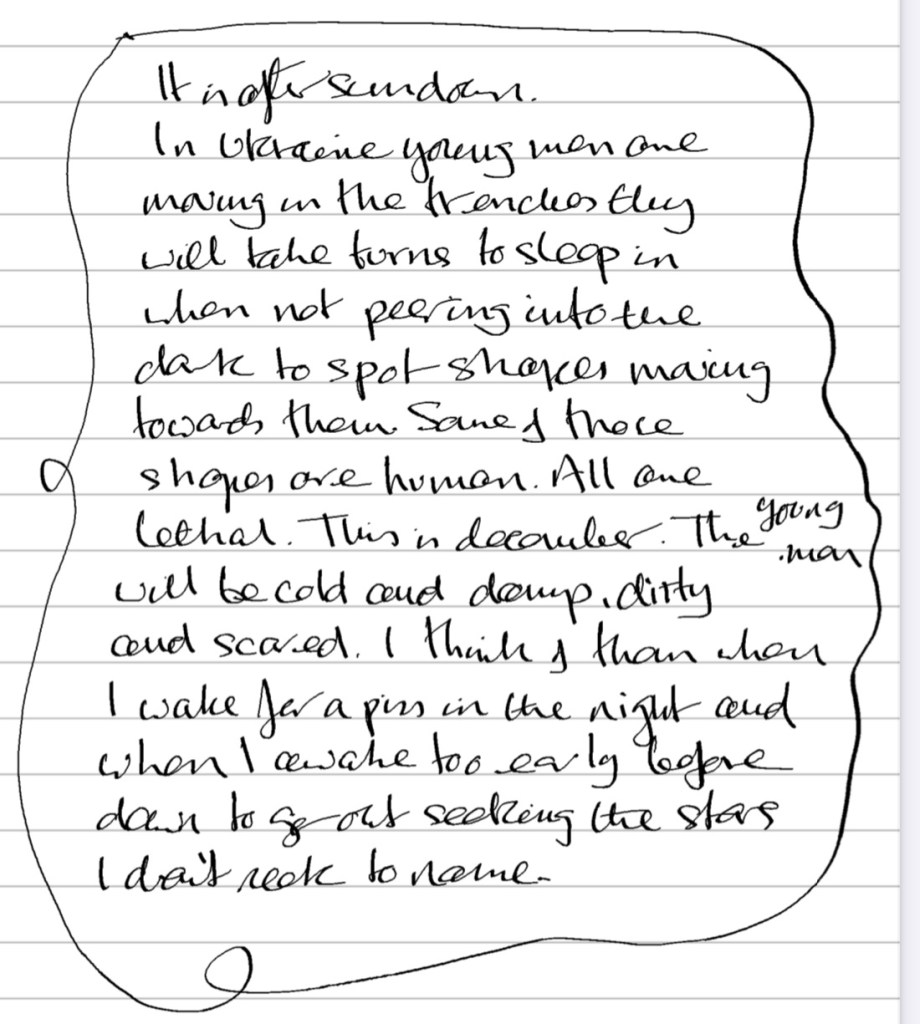 It is after sundown.
In Ukraine young men are
moving in the trenches they
will take turns to sleep in
when not peering into the
dark to spot shapes moving
towards them. Some of those
shapes are human. All are
lethal. This is december. The young
men
will be cold and damp, dirty
and scared. I think of them when
I wake for a piss in the night and
when I awake too early before
dawn to go out seeking the stars
I don't seek to name.